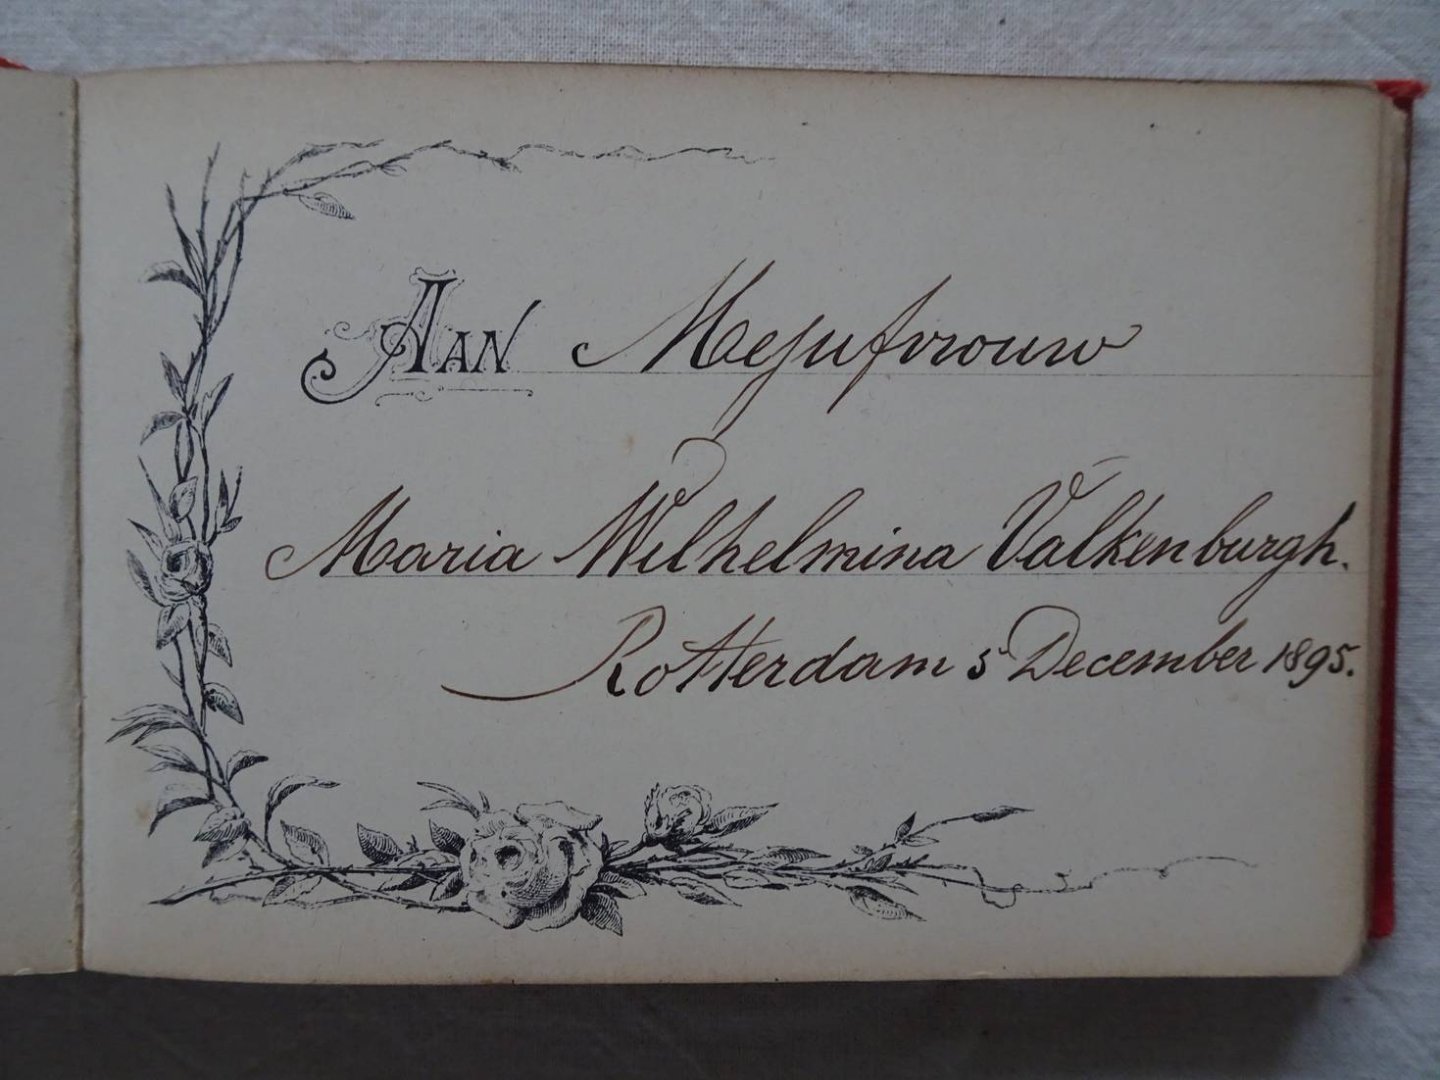 AAN Mejufvrouw
Maria Wilhelmina Valkenburgh.
Rotterdam 5 December 1895.